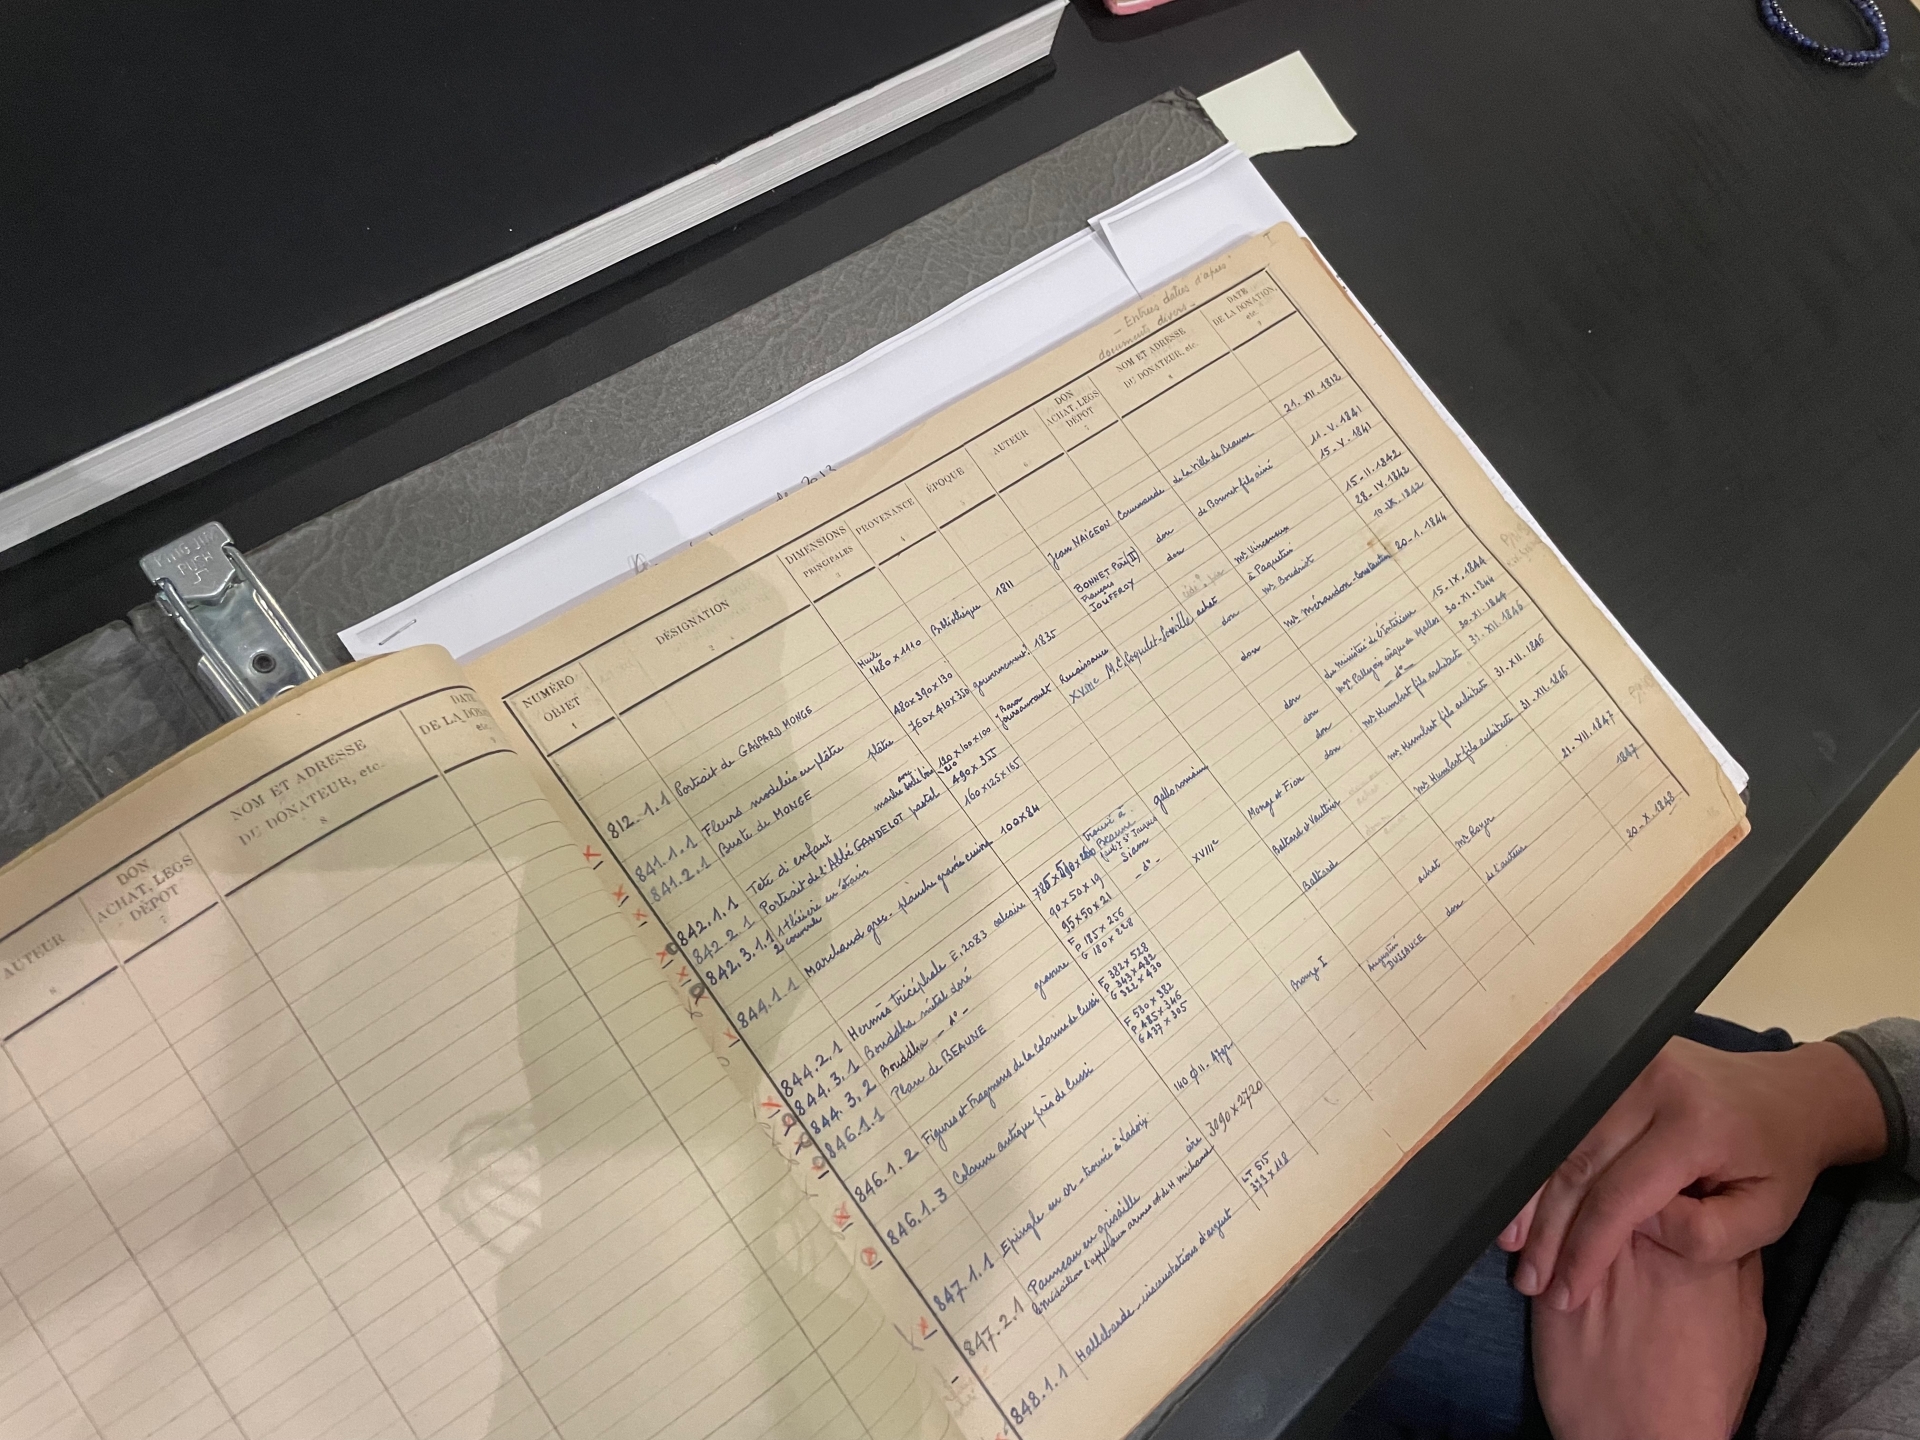 - Entrées datées d'après
documents divers -
NUMÉRO
OBJET
1
DÉSIGNATION
2
DIMENSIONS
PRINCIPALES
3
PROVENANCE
4
ÉPOQUE
5
AUTEUR
6
DON
ACHAT, LEGS
DÉPOT
7
NOM ET ADRESSE
DU DONATEUR, etc.
8
DATE
DE LA DONATION,
etc.
9
812.1.1 Portrait de GASPARD MONGE Huile 1480 x 1110 Bibliothèque 1811 Jean NAIGEON Commande de la Ville de Beaune 21. XII. 1812
841.1.1 Fleurs modelées en plâtre 480x390x130 BONNET Père (II) don de Bonnet fils aîné 11. V. 1841
841.2.1 Buste de MONGE plâtre 760x410x350 1835 François JOUFFROY don 15. V. 1841
842.1.1 Tête d'enfant Renaissance Mr Vinceneux 15. II. 1842
842.2.1 Portrait de l'Abbé GANDELOT pastel 490 x 355 XVIIIe achat à Paquetin 28. IV. 1842
842.3.1 1 théière en étain 160x125x165 don Mr Boudriot 10. IX. 1842
844.1.1 Marchand grec. planche gravée cuivre 100x84 don Mr Mérandon 20-1.1844
844.2.1 Hermès tricéphale E.2083 calcaire trouvé à Beaune gallo romain don du Ministère de l'Intérieur 15. IX. 1844
844.3.1 Bouddha métal doré 90x50x19 Siam don 30. XI. 1844
844.3.2 Bouddha - do - 95x50x21 - do - don - do - 30. XI. 1844
846.1.1 Plan de BEAUNE gravure F P 185 x 256 G 180 x 228 XVIIIe Monge et Fion don Mr Humbert fils architecte 31. XII. 1846
846.1.2 Figures et Fragmens de la Colonne de Cussi F 382 x 528 P 343 x 482 G 322 x 430 Baltard et Vauthier Mr Humbert fils architecte 31. XII. 1846
846.1.3 Colonne antique près de Cussi F 530 x 382 P 485 x 346 G 437 x 305 Baltard Mr Humbert fils architecte 31. XII. 1846
847.1.1 Epingle en or - trouvée à Ladoix 140 Ø 11. 47gr. Bronze I achat Mr Royer 21. XII. 1847
847.2.1 Panneau en grisaille 3090 x 2720 Augustin DUSSAUCE don de l'auteur 1847
848.1.1 Hallebarde - incrustations d'argent LT. 515 373 x 118 20. X. 1848
AUTEUR
DON
ACHAT, LEGS
DÉPOT
7
NOM ET ADRESSE
DU DONATEUR, etc.
8
DATE
DE LA DON